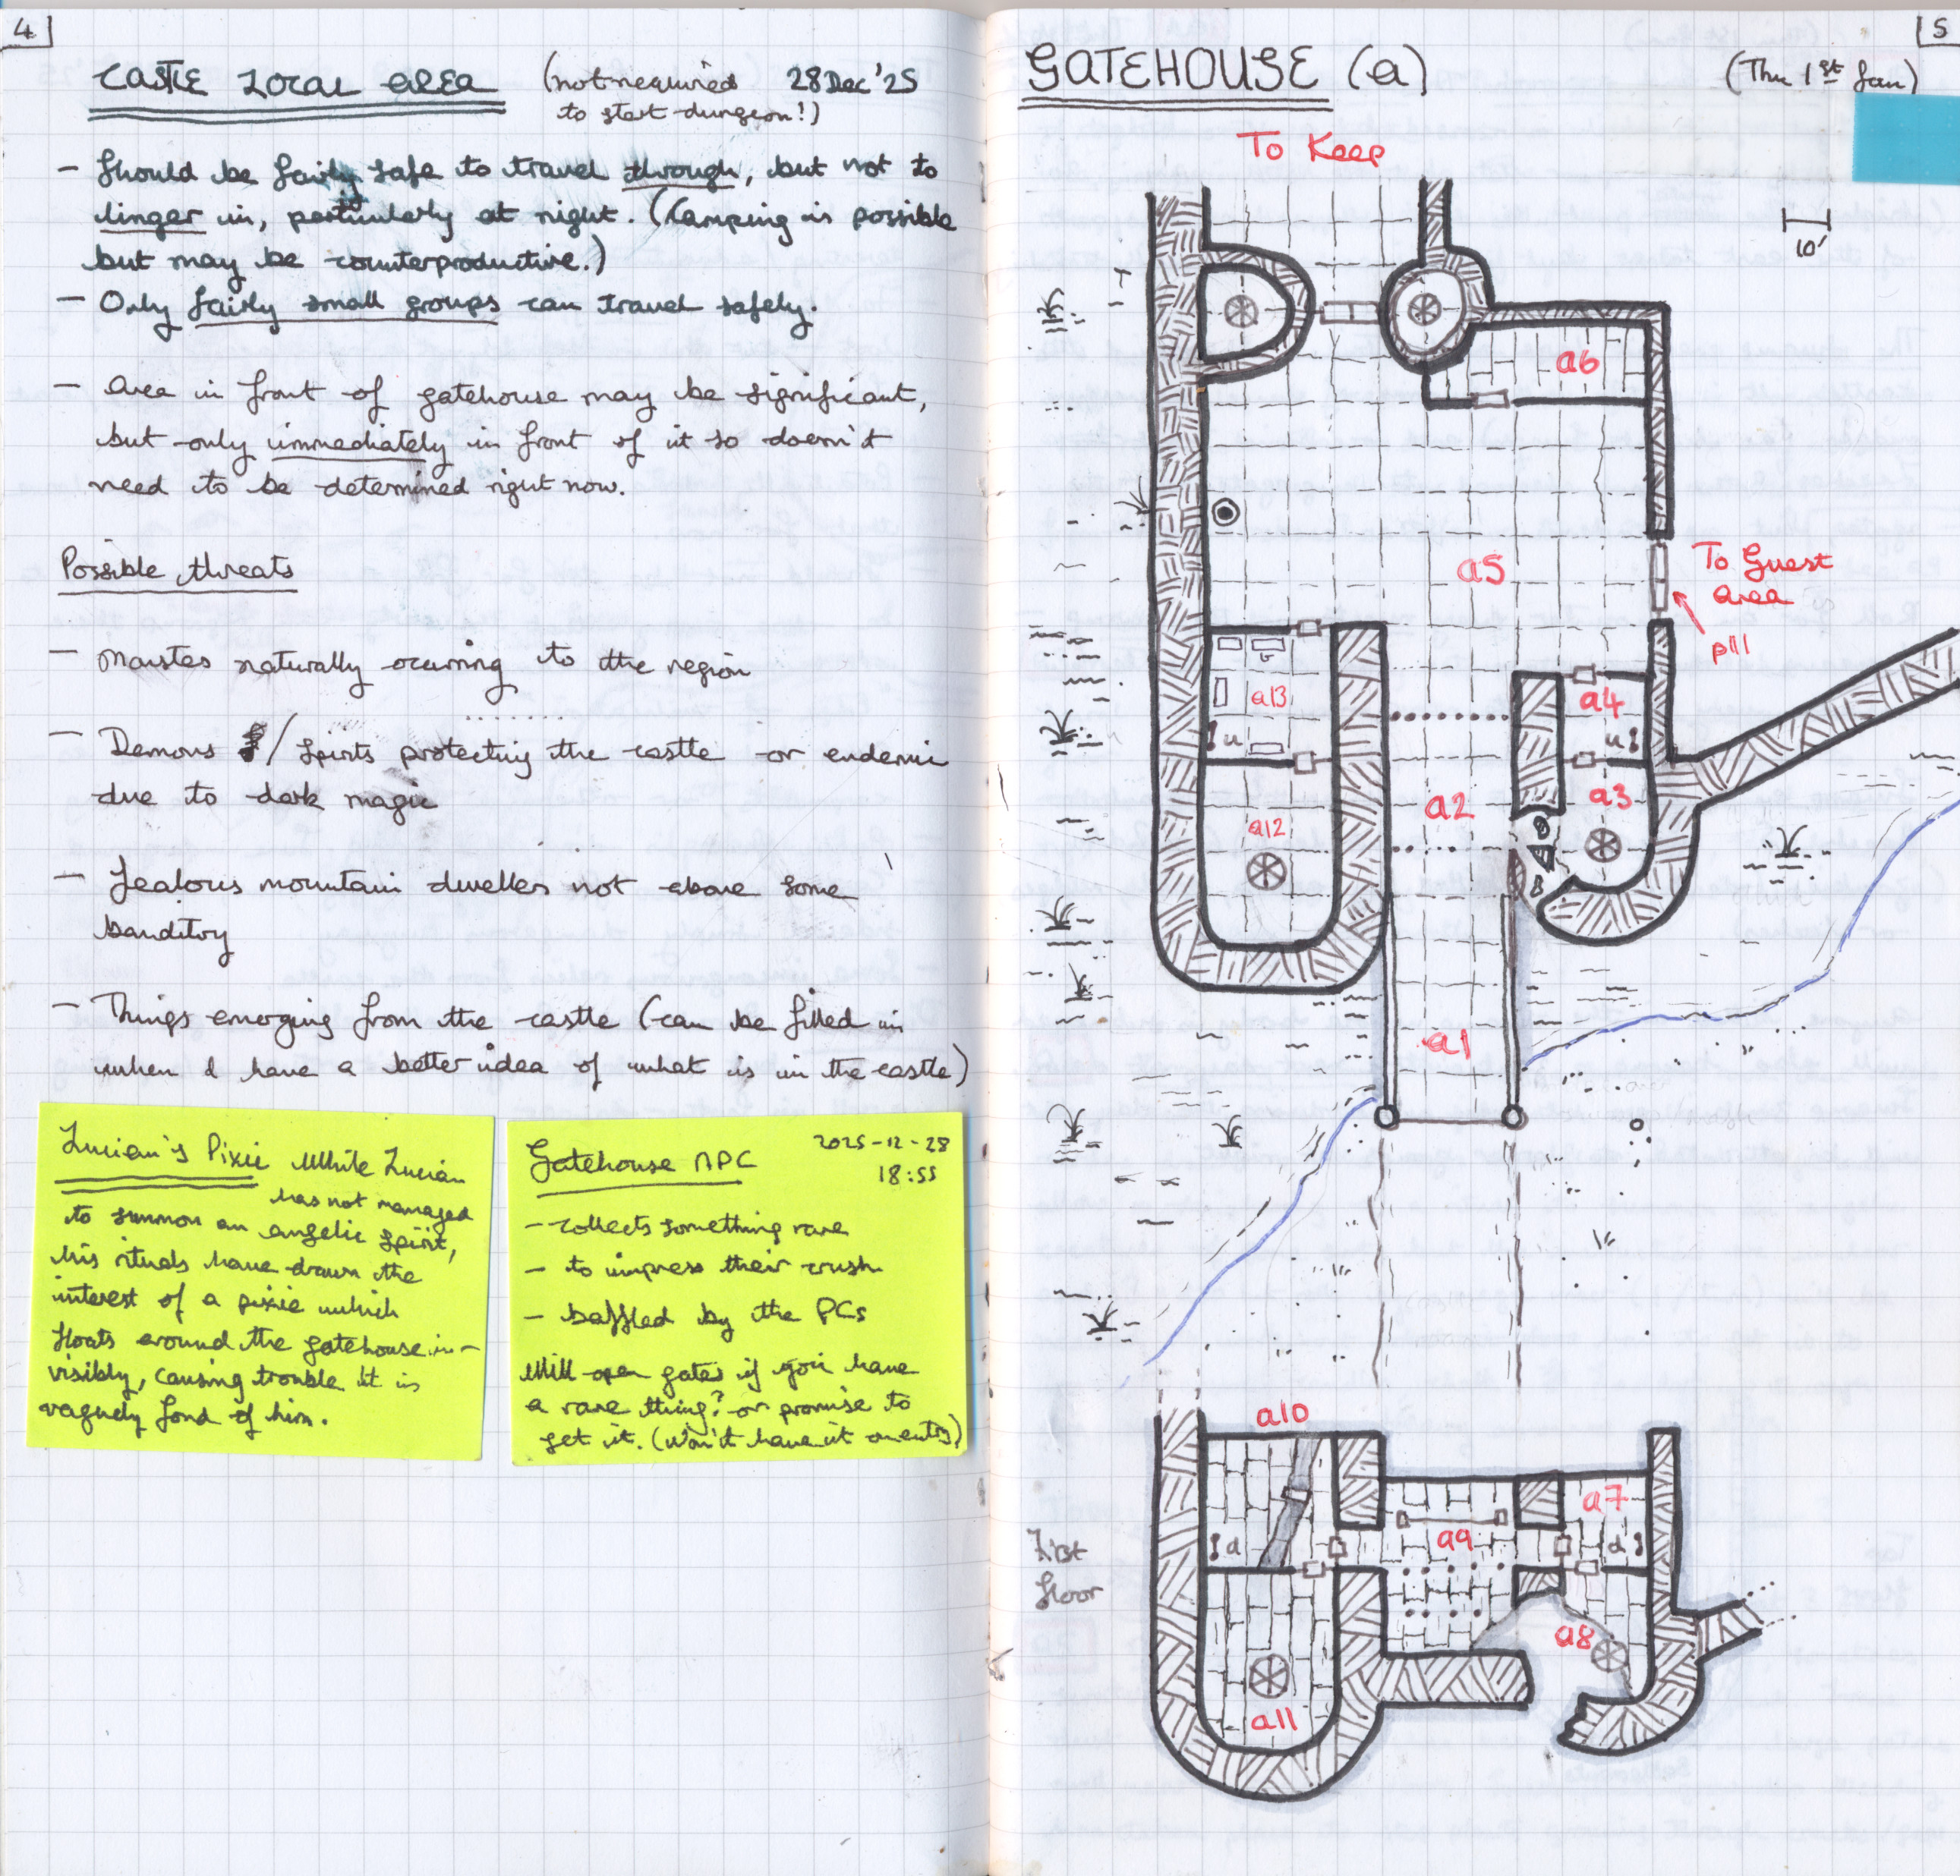 4
CASTLE LOCAL AREA (not required 28 Dec '25
to start dungeon!)
- Should be fairly safe to travel through, but not to
linger in, particularly at night. (Camping is possible
but may be counterproductive.)
- Only fairly small groups can travel safely.
- Area in front of gatehouse may be significant,
but only immediately in front of it so doesn't
need to be determined right now.
Possible threats
- naturally ocurring to the region
- Demons / spirits protecting the castle or endemic
due to dark magic
- Jealous mountain dwellers not above some
banditry
- Things emerging from the castle (can be filled in
when I have a better idea of what is in the castle)
Lucian's Pixie While Lucian
has not managed
to summon an angelic spirit,
his rituals have drawn the
interest of a pixie which
floats around the gatehouse in-
visibly, causing trouble. It is
vaguely fond of him.
Gatehouse NPC 2025-12-28
18:55
- collects something rare
- to impress their crush
- baffled by the PCs
Will open gates if you have
a rare thing? or promise to
get it. (Won't have it on entry)
5
GATEHOUSE (a) (Thu 1st Jan)
To Keep
10'
a6
a5
To Guest
Area
p111
a13
u
a4
u
a3
a2
a12
a1
a10
a7
a9
d
d
First
floor
a8
a11